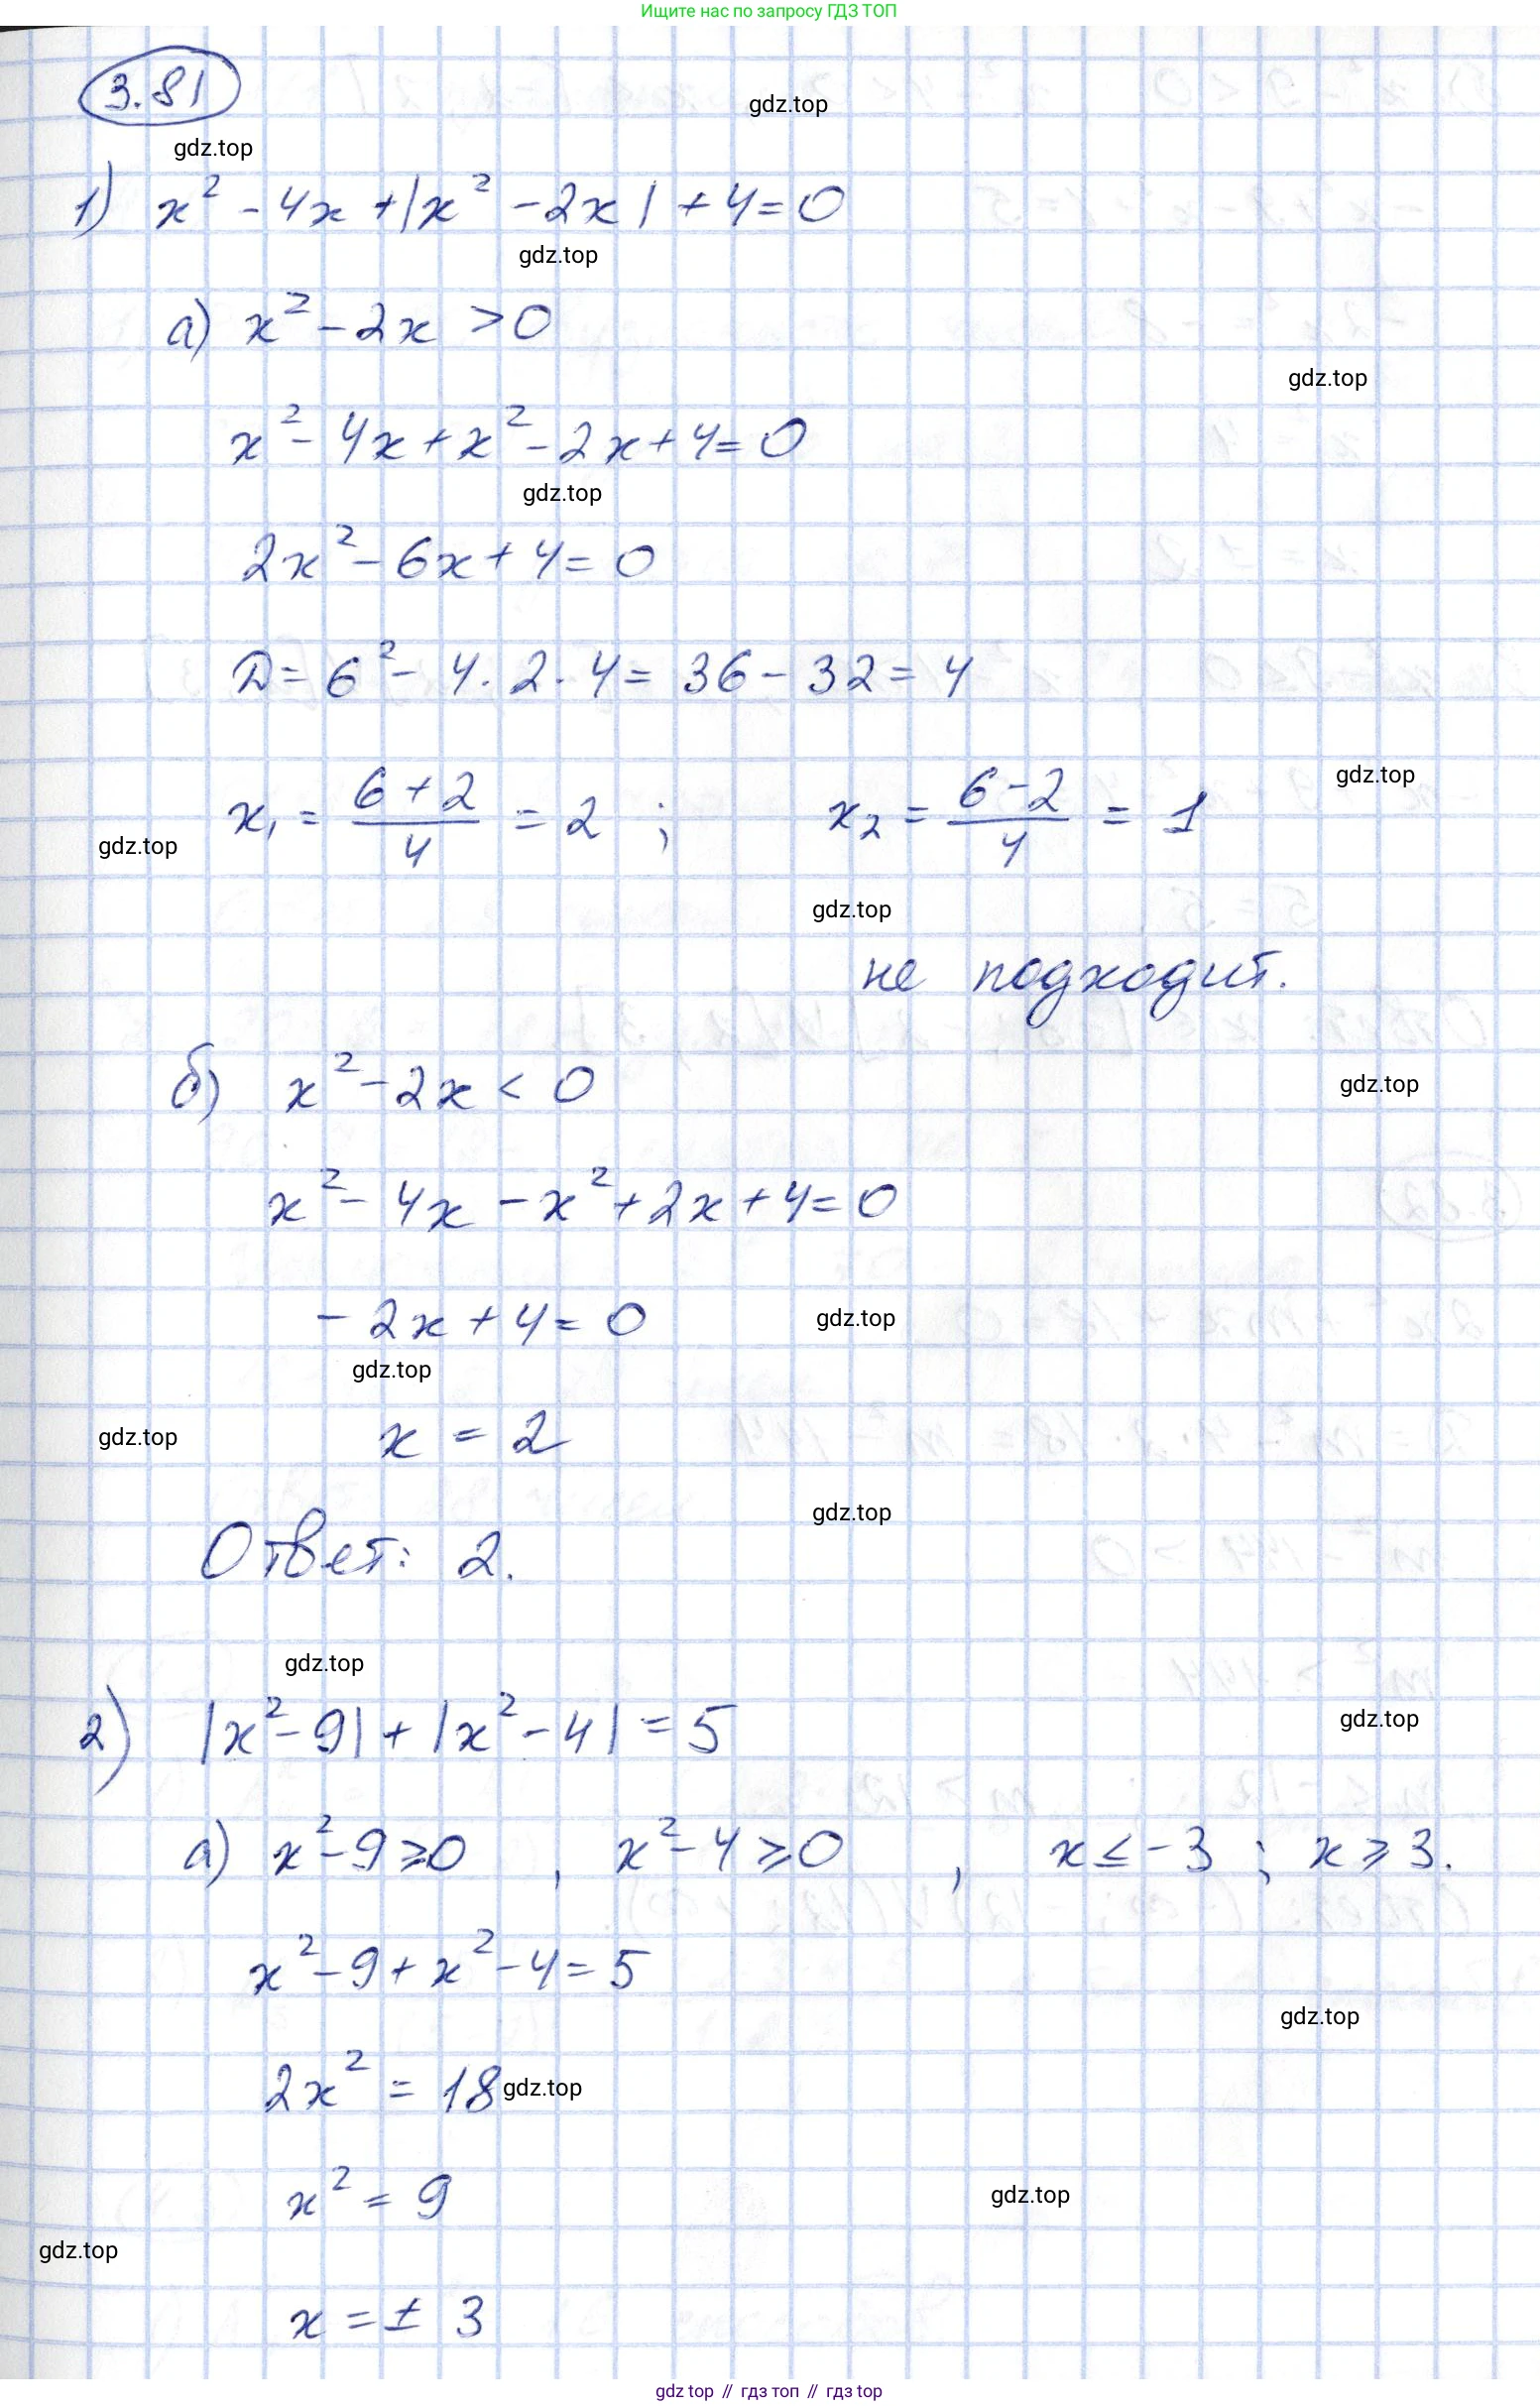 Ищите нас по запросу ГДЗ ТОП
3.81
gdz.top
gdz.top
1) x² - 4x + |x² - 2x| + 4 = 0
gdz.top
а) x² - 2x > 0
gdz.top
x² - 4x + x² - 2x + 4 = 0
gdz.top
2x² - 6x + 4 = 0
D = 6² - 4 · 2 · 4 = 36 - 32 = 4
gdz.top
x₁ = (6 + 2)/4 = 2 ; x₂ = (6 - 2)/4 = 1
gdz.top
gdz.top
не подходит.
б) x² - 2x < 0
gdz.top
x² - 4x - x² + 2x + 4 = 0
- 2x + 4 = 0
gdz.top
gdz.top
x = 2
gdz.top
gdz.top
Ответ: 2.
gdz.top
2) |x² - 9| + |x² - 4| = 5
gdz.top
а) x² - 9 ≥ 0 , x² - 4 ≥ 0 , x ≤ -3 ; x ≥ 3.
x² - 9 + x² - 4 = 5
gdz.top
2x² = 18
gdz.top
x² = 9
gdz.top
gdz.top
x = ± 3
gdz top // гдз топ // гдз top